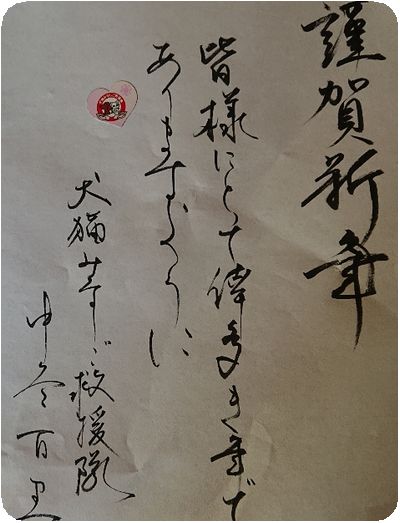 謹賀新年
皆様にとって倖多き年で
ありますように
犬猫みなしご救援隊
中谷百里